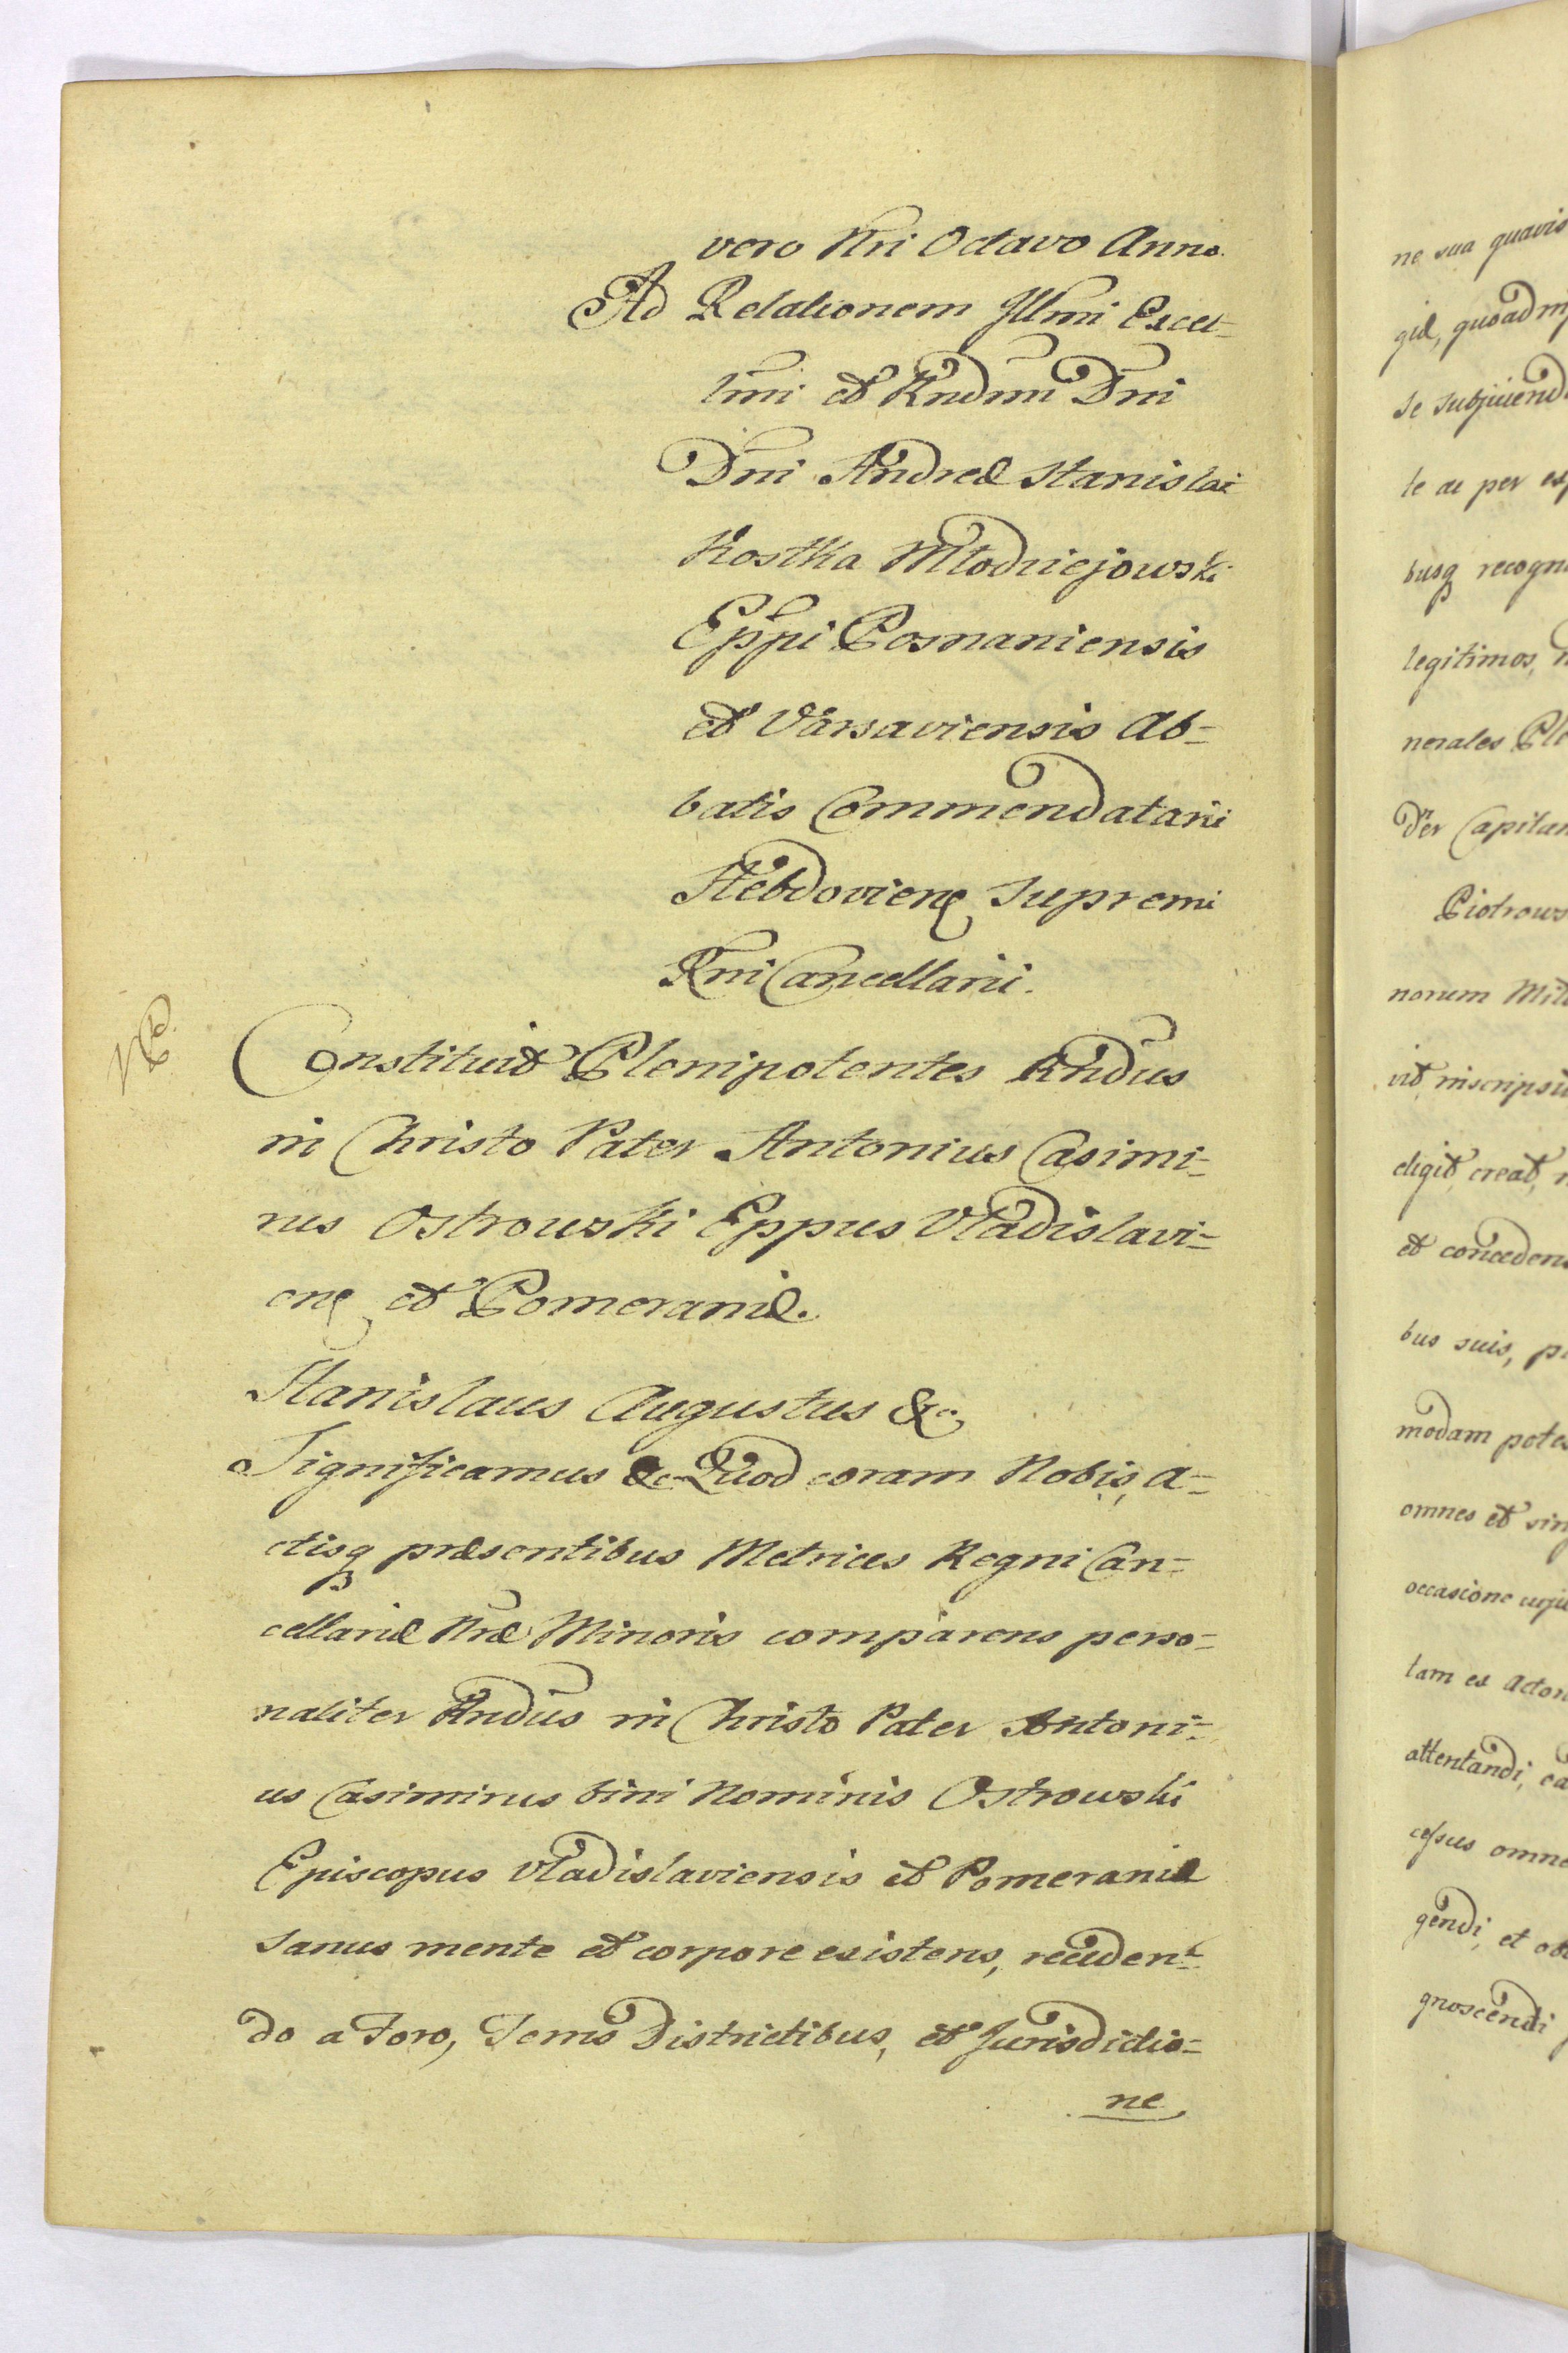 vero Nri Octavo Anno.
Ad Relationem Illmi Excel-
lmi et Rndmi Dni
Dni Andreæ Stanislai
Kostka Młodziejowski
Eppi Posnaniensis
et Varsaviensis Ab-
batis Commendatarii
Hebdovien Supremi
Rni Cancellarii.
Constituit Plenipotentes Rndus
in Christo Pater Antonius Casimi-
rus Ostrowski Eppus Vladislavi-
en et Pomeraniæ.
Stanislaus Augustus &c
Significamus &c Quod coram Nobis, a-
ctisq præsentibus Metrices Regni Can-
cellariæ Nræ Minoris comparens perso-
naliter Rndus in Christo Pater Antoni-
us Casimirus bini Nominis Ostrowski
Episcopus Vladislaviensis et Pomeraniæ
sanus mente et corpore existens, receden-
do a Foro, Terris Districtibus, et Jurisdictio-
ne
ne sua quavis
giæ, quoad
se subjiciend
te ac per
busq recogn
legitimos,
nerales
Capitan
Piotrows
norum
vit inscripsit
eligit, creat,
et conceden
bus suis,
modam potes
omnes et sin
occasione
tam ex Actor
attentandi,
cessus omne
gendi, et
gnoscendi